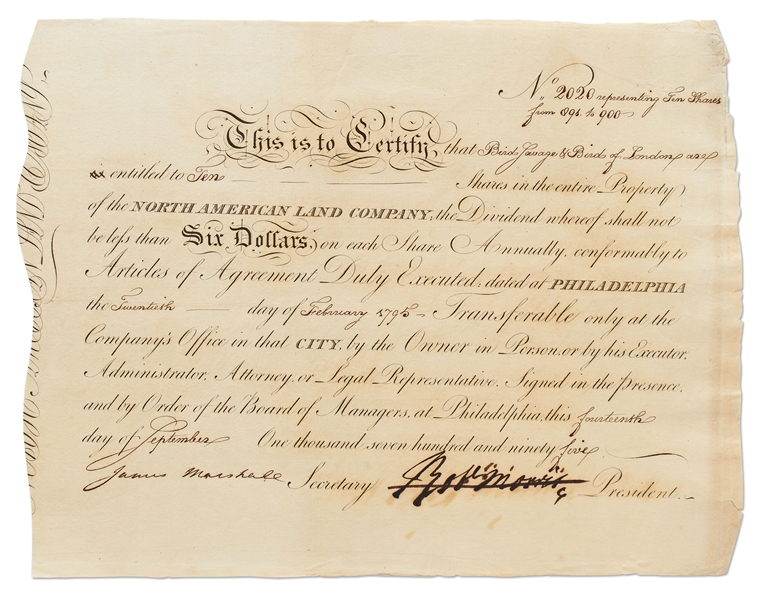 No. 2020 representing Ten Shares
from 891 to 900
This is to Certify, that Bird Savage & Bird of London are
entitled to Ten Shares in the entire Property
of the NORTH AMERICAN LAND COMPANY, the Dividend whereof shall not
be less than Six Dollars, on each Share Annually, conformably to
Articles of Agreement Duly Executed; dated at PHILADELPHIA
the Twentieth day of February 1795 - Transferable only at the
Company's Office in that CITY, by the Owner in Person, or by his Executor,
Administrator, Attorney, or Legal Representative. Signed in the presence,
and by Order of the Board of Managers, at Philadelphia, this fourteenth
day of September One thousand seven hundred and ninety five
James Marshall Secretary Robt Morris President.